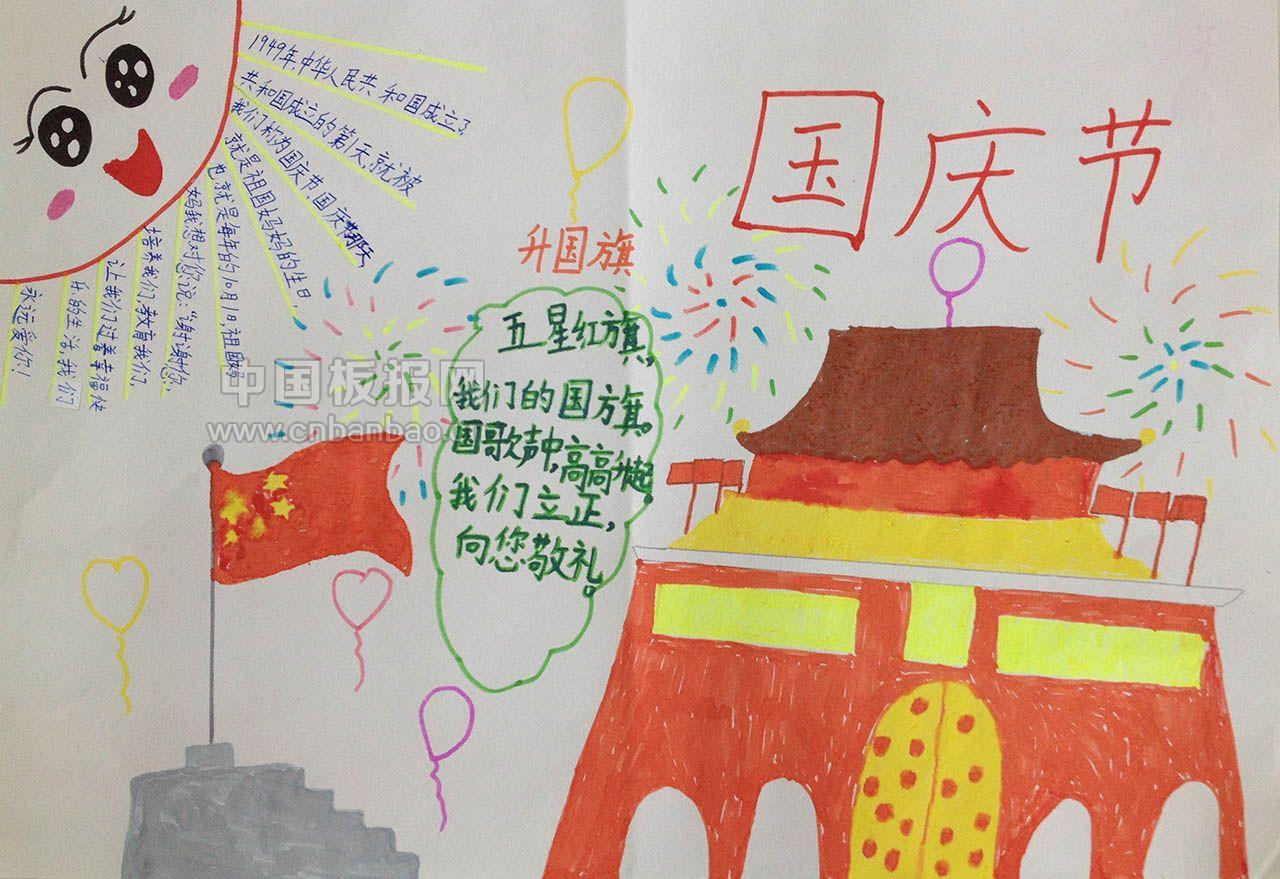 国庆节
1949年,中华人民共和国成立了
共和国成立的第1天,就被
我们称为国庆节国庆节那天,
就是祖国妈妈的生日
也就是每年的10月1日,祖国妈
妈我想对你说:“谢谢您,
培养我们,教育我们
让我们过着幸福快
乐的生活,我们
永远爱你们!
升国旗
五星红旗,
我们的国旗。
国歌声中,高高升起。
我们立正,
向您敬礼。
中国板报网
www.cnbanbao.